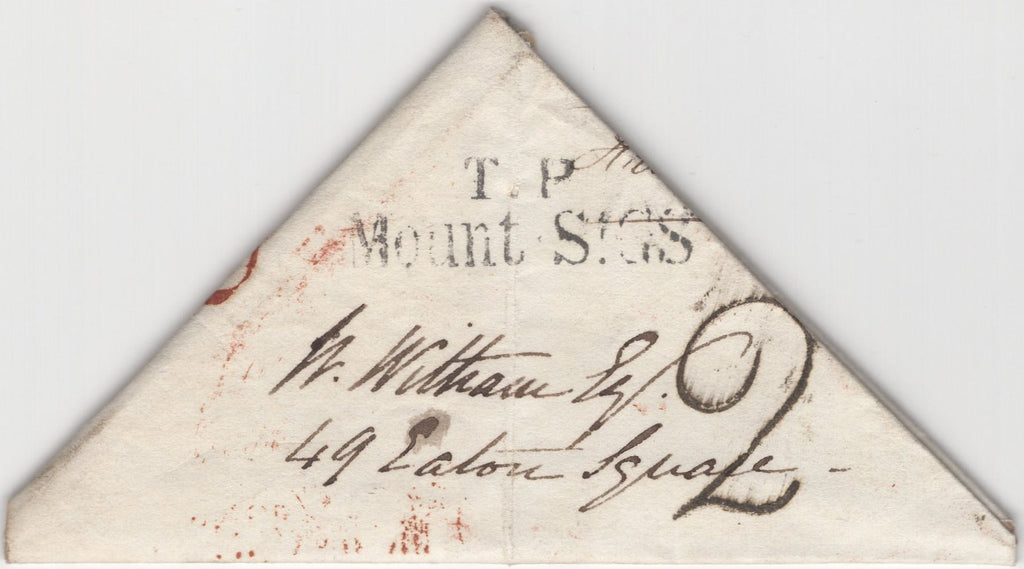 T.P
Mount St. G.S
W. Witham Esq.
49 Eaton Square -
2